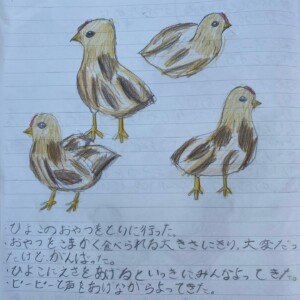 ・ひよこのおやつをとりに行った。
・おやつをこまかく食べられる大きさにきり、大変だっ
たけど、がんばった。
・ひよこにえさをあげるといっきにみんなよってきた。
・ピーピーと声をあげながらよってきた。